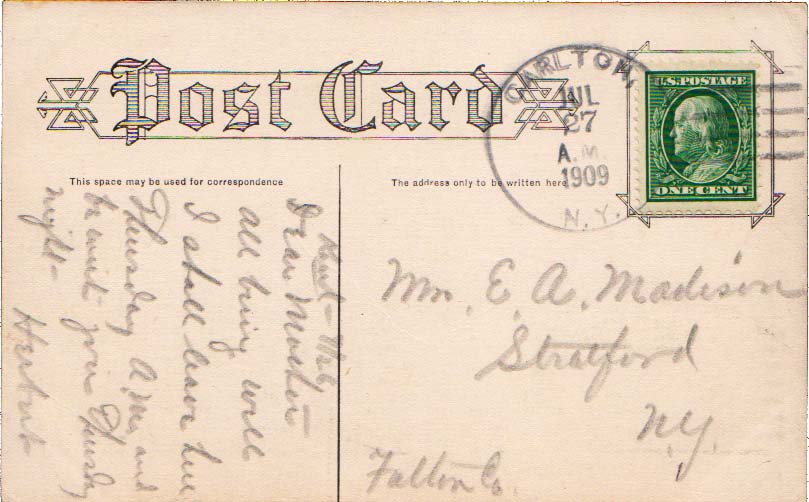 Post Card
CARLTON,
JUL
27
A.M.
1909
N.Y.
U.S. POSTAGE
ONE CENT
This space may be used for correspondence
The address only to be written here
Dear Mother
all being well
I shall leave here
Thursday A.M. and
be with you Thursday
night—
Herbert
Mrs. E. A. Madison
Stratford
NY.
Fulton Co.